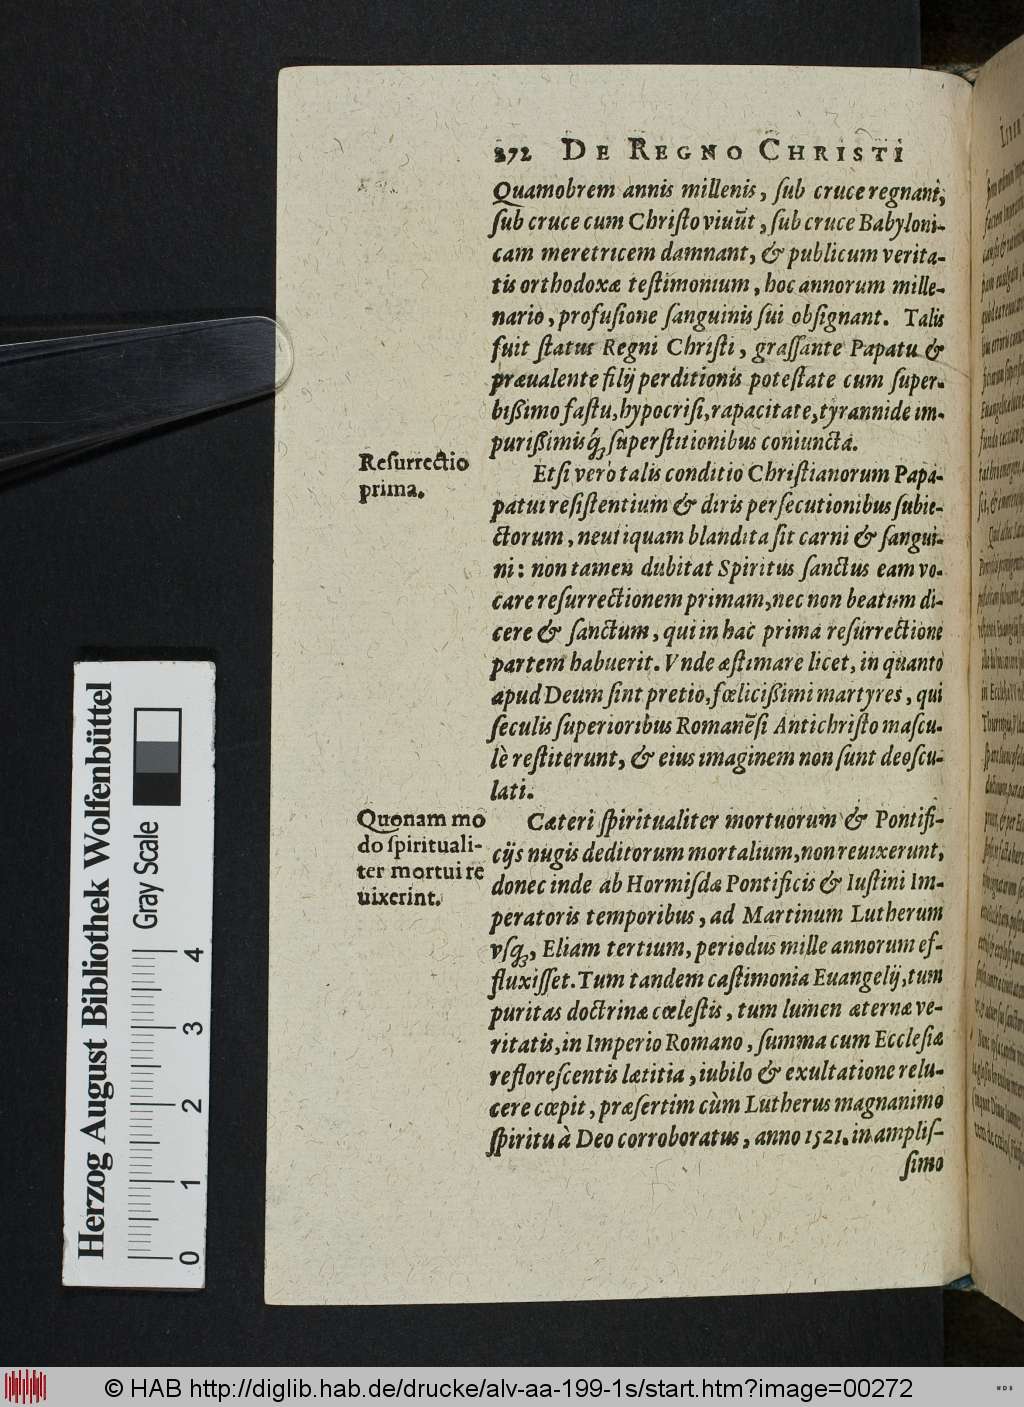 272 DE REGNO CHRISTI
Quamobrem annis millenis, ſub cruce regnant,
ſub cruce cum Chriſto viuūt, ſub cruce Babyloni-
cam meretricem damnant, & publicum verita-
tis orthodoxæ teſtimonium, hoc annorum mille-
nario, profuſione ſanguinis ſui obſignant. Talis
fuit ſtatus Regni Chriſti, graſſante Papatu &
præualente filij perditionis poteſtate cum ſuper-
bißimo faſtu, hypocriſi, rapacitate, tyrannide im-
purißimisq́; ſuperſtitionibus coniuncta.
Reſurrectio
prima.
Etſi verò talis conditio Chriſtianorum Papa-
patui reſiſtentium & diris perſecutionibus ſubie-
ctorum, neutiquam blandita ſit carni & ſangui-
ni: non tamen dubitat Spiritus ſanctus eam vo-
care reſurrectionem primam, nec non beatum di-
cere & ſanctum, qui in hac prima reſurrectione
partem habuerit. Vnde æſtimare licet, in quanto
apud Deum ſint pretio, fœliciſſimi martyres, qui
ſeculis ſuperioribus Romanēſi Antichriſto maſcu-
lè reſtiterunt, & eius imaginem non ſunt deoſcu-
lati.
Quonam mo
do ſpirituali-
ter mortui re
uixerint.
Cæteri ſpiritualiter mortuorum & Pontifi-
cijs nugis deditorum mortalium, non reuixerunt,
donec inde ab Hormiſdæ Pontificis & Iuſtini Im-
peratoris temporibus, ad Martinum Lutherum
vſq;, Eliam tertium, periodus mille annorum ef-
fluxiſſet. Tum tandem caſtimonia Euangelij, tum
puritas doctrinæ cœleſtis, tum lumen æternæ ve-
ritatis, in Imperio Romano, ſumma cum Eccleſiæ
refloreſcentis lætitia, iubilo & exultatione relu-
cere cœpit, præſertim cùm Lutherus magnanimo
ſpiritu à Deo corroboratus, anno 1521. in ampliſ-
ſimo
Herzog August Bibliothek Wolfenbüttel
Gray Scale
0 1 2 3 4
© HAB http://diglib.hab.de/drucke/alv-aa-199-1s/start.htm?image=00272